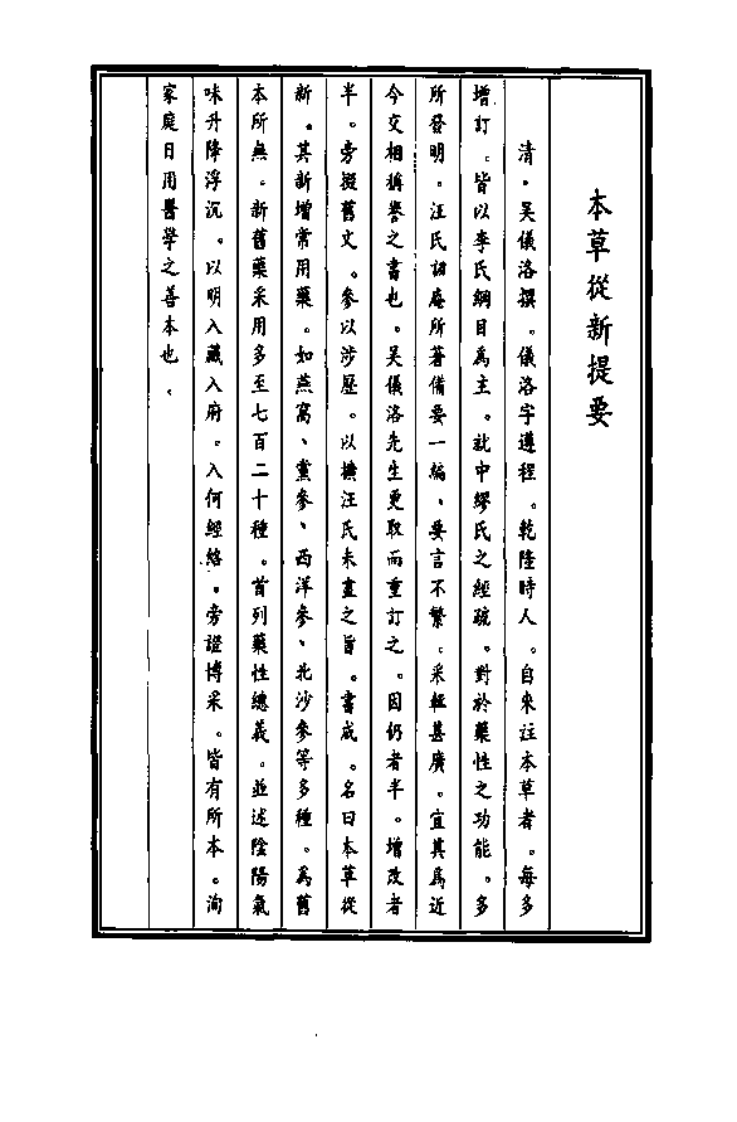 本草從新提要
清．吳儀洛撰。儀洛字遵程。乾隆時人。自來註本草者。每多
增訂。皆以李氏綱目爲主。就中繆氏之經疏。對於藥性之功能。多
所發明。汪氏訒庵所著備要一編、要言不繁。采輯甚廣。宜其爲近
今交相稱譽之書也。吳儀洛先生更取而重訂之。因仍者半。增改者
半。旁掇舊文。參以涉歷。以擴汪氏未盡之旨。書成。名曰本草從
新。其新增常用藥。如燕窩、黨參、西洋參、北沙參等多種。爲舊
本所無。新舊藥采用多至七百二十種。首列藥性總義。並述陰陽氣
味升降浮沉。以明入藏入府。入何經絡。旁證博采。皆有所本。洵
家庭日用醫學之善本也。